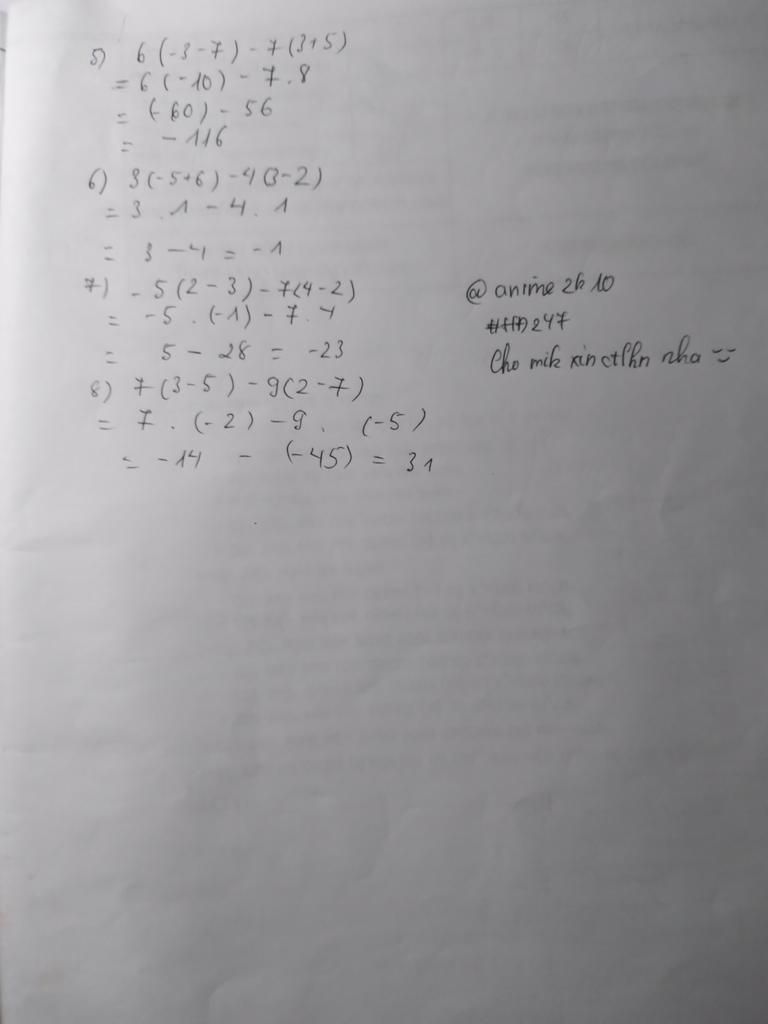 5) 6(-3-7) - 7(3+5)
= 6(-10) - 7.8
= (-60) - 56
= -116
6) 3(-5+6) - 4(3-2)
= 3 . 1 - 4 . 1
= 3 - 4 = -1
7) -5(2-3) - 7(4-2)
= -5 . (-1) - 7 . 4
= 5 - 28 = -23
8) 7(3-5) - 9(2-7)
= 7 . (-2) - 9 . (-5)
= -14 - (-45) = 31
@ anime 2k10
247
Cho mik xin ctlhn nha